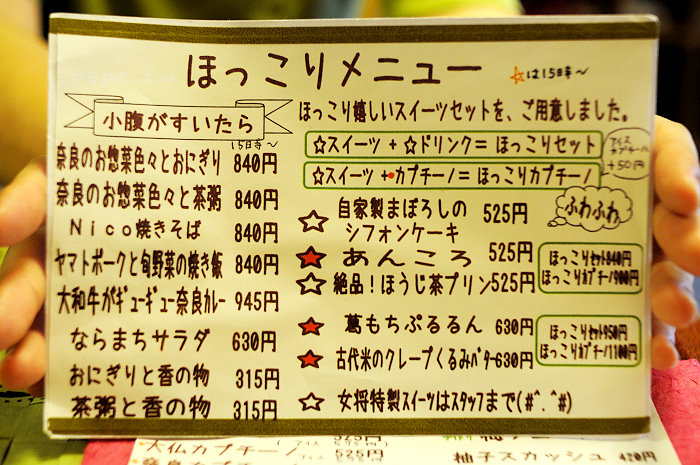 ほっこりメニュー
☆は15時～
小腹がすいたら
15時～
奈良のお惣菜色々とおにぎり 840円
奈良のお惣菜色々と茶粥 840円
Nico焼きそば 840円
ヤマトポークと旬野菜の焼き飯 840円
大和牛がギューギュー奈良カレー 945円
ならまちサラダ 630円
おにぎりと香の物 315円
茶粥と香の物 315円
ほっこり嬉しいスイーツセットを、ご用意しました。
☆スイーツ + ☆ドリンク = ほっこりセット
☆スイーツ + カプチーノ = ほっこりカプチーノ
アイス
カプチーノは
+50円
ふわふわ
☆ 自家製まぼろしの
シフォンケーキ 525円
★ あんころ 525円
☆ 絶品！ほうじ茶プリン 525円
ほっこりセット840円
ほっこりカプチーノ900円
★ 葛もちぷるるん 630円
★ 古代米のクレープくるみバター 630円
ほっこりセット950円
ほっこりカプチーノ1100円
☆ 女将特製スイーツはスタッフまで(#^.^#)
大仏カプチーノ 525円
柚子スカッシュ 420円